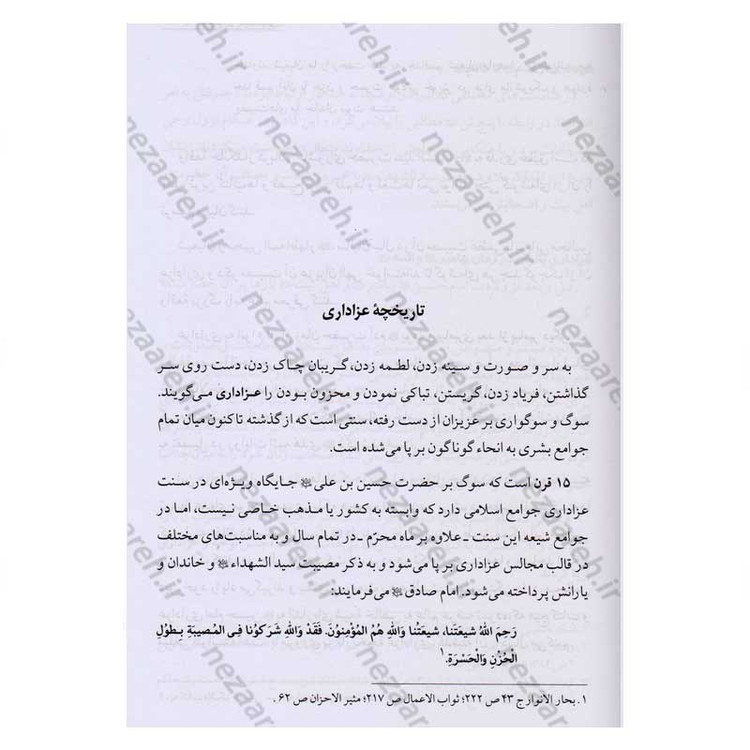 تاریخچهٔ عزاداری
به سر و صورت و سینه زدن، لطمه زدن، گریبان چاک زدن، دست روی سر
گذاشتن، فریاد زدن، گریستن، تباکی نمودن و محزون بودن را عزاداری می‌گویند.
سوگ و سوگواری بر عزیزان از دست رفته، سنتی است که از گذشته تاکنون میان تمام
جوامع بشری به انحاء گوناگون بر پا می‌شده است.
۱۵ قرن است که سوگ بر حضرت حسین بن علی جایگاه ویژه‌ای در سنت
عزاداری جوامع اسلامی دارد که وابسته به کشور یا مذهب خاصی نیست، اما در
جوامع شیعه این سنت ـ علاوه بر ماه محرّم ـ در تمام سال و به مناسبت‌های مختلف
در قالب مجالس عزاداری بر پا می‌شود و به ذکر مصیبت سید الشهداء و خاندان و
یارانش پرداخته می‌شود. امام صادق می‌فرمایند:
رَحِمَ اللهُ شیعَتَنا، شیعَتُنا وَاللهِ هُمُ المُؤمِنُونَ. فَقَدْ وَاللهِ شَرَکُونا فِی المُصیبَةِ بِطولِ
الْحُزْنِ وَالْحَسْرَةِ.۱
۱. بحار الانوار ج ۴۳ ص ۲۲۲؛ ثواب الاعمال ص ۲۱۷؛ مثیر الاحزان ص ۶۲.
nezaareh.ir
nezaareh.ir
nezaareh.ir
nezaareh.ir
nezaareh.ir
nezaareh.ir
nezaareh.ir
nezaareh.ir
nezaareh.ir